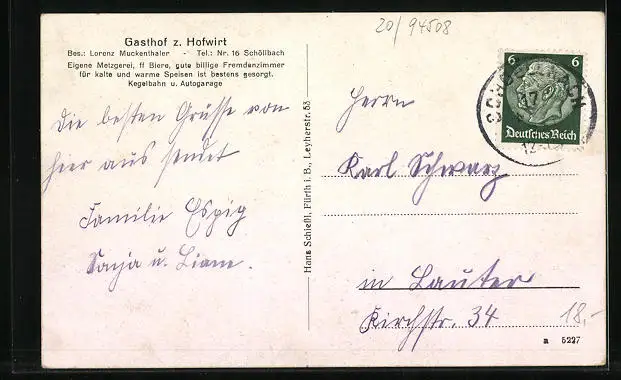 20/94508
Gasthof z. Hofwirt
Bes.: Lorenz Muckenthaler - Tel.: Nr. 16 Schöllbach
Eigene Metzgerei, ff Biere, gute billige Fremdenzimmer
für kalte und warme Speisen ist bestens gesorgt.
Kegelbahn u. Autogarage
Die besten Grüsse von
hier aus sendet
Familie Espig
Sonja u. Liane.
Hans Schießl, Fürth i. B., Leyherstr. 53
6 6
Deutsches Reich
Herrn
Karl Schwarz
in Lauter
Kirchstr. 34
18,-
a 5227